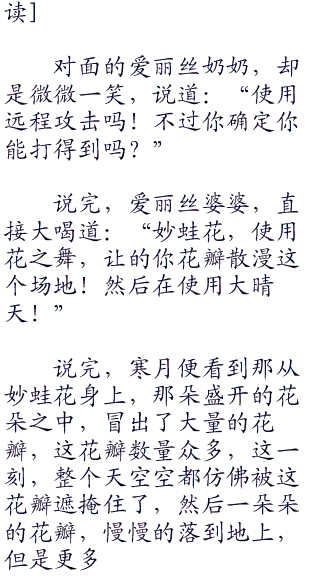 读]
对面的爱丽丝奶奶，却
是微微一笑，说道：“使用
远程攻击吗！不过你确定你
能打得到吗？”
说完，爱丽丝婆婆，直
接大喝道：“妙蛙花，使用
花之舞，让的你花瓣散漫这
个场地！然后在使用大晴
天！”
说完，寒月便看到那从
妙蛙花身上，那朵盛开的花
朵之中，冒出了大量的花
瓣，这花瓣数量众多，这一
刻，整个天空空都仿佛被这
花瓣遮掩住了，然后一朵朵
的花瓣，慢慢的落到地上，
但是更多